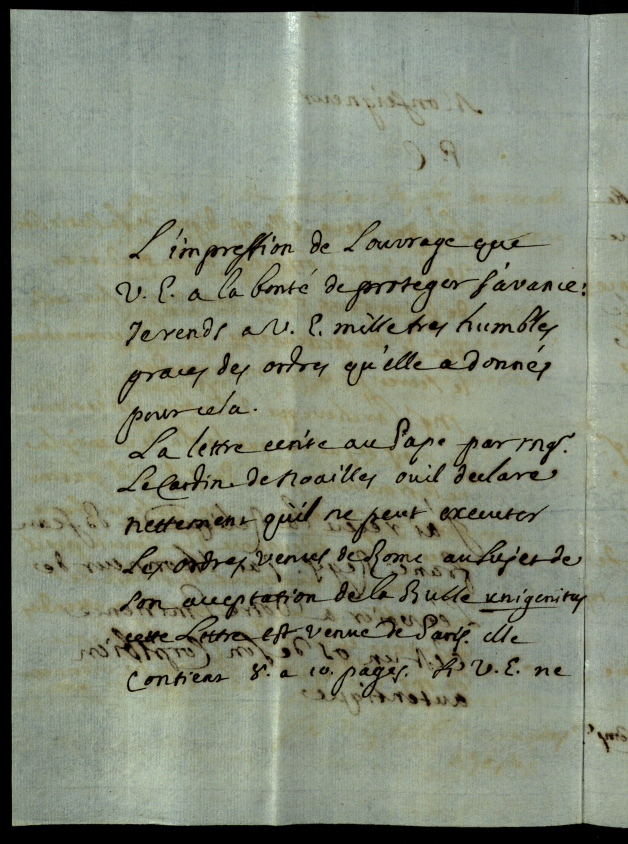 L'impression de Louvrage que
V. E. a la bonté de proteger s'avance:
Je rends a V. E. mille tres humbles
graces des ordres qu'elle a donnés
pour cela.
La lettre ecrite au Pape par mgr.
Le Cardin. de Noailles ou il declare
nettement qu'il ne peut executer
Les ordres venus de Rome au sujet de
son acceptation de la Bulle unigenitus
cette Lettre est venue de Paris. elle
Contient 8. a 10. pages. Si V. E. ne